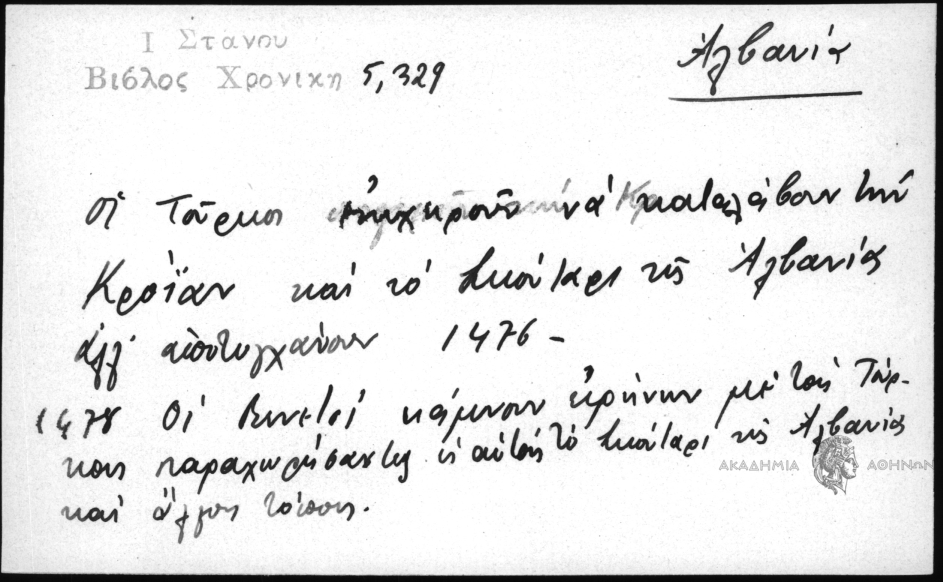 Ι Στανου
Βιβλος Χρονικη 5,329
Ἀλβανία
Οἱ Τοῦρκοι ἐπιχειροῦν νά καταλάβουν τήν
Κροΐαν καί τό Σκούταρι τῆς Ἀλβανίας
ἀλλ' ἀποτυγχάνουν 1476 –
1478 Οἱ Βενετοί κάμνουν εἰρήνην μέ τούς Τούρ-
κους παραχωρήσαντες εἰς αὐτούς τό Σκούταρι τῆς Ἀλβανίας
καί ἄλλους τόπους.
ΑΚΑΔΗΜΙΑ ΑΘΗΝΩΝ